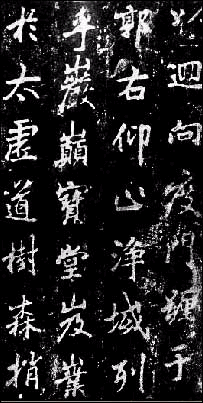 以迴向度門于
郭右仰止淨域列
乎巖巔寶堂岌業
於太虛道樹森梢